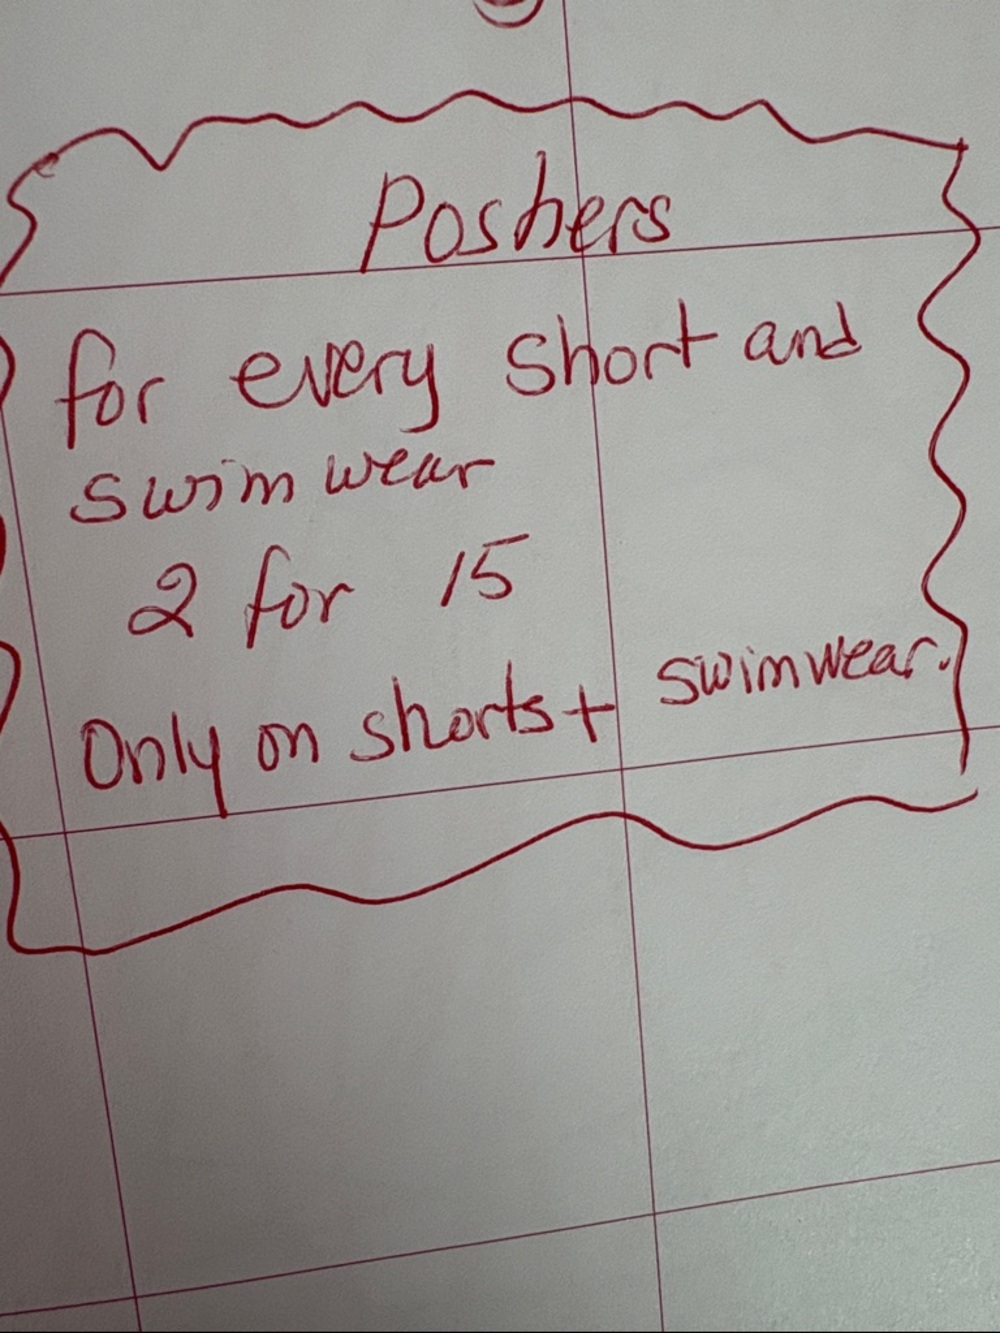 Poshers
for every short and
swimwear
2 for 15
Only on shorts + swimwear.